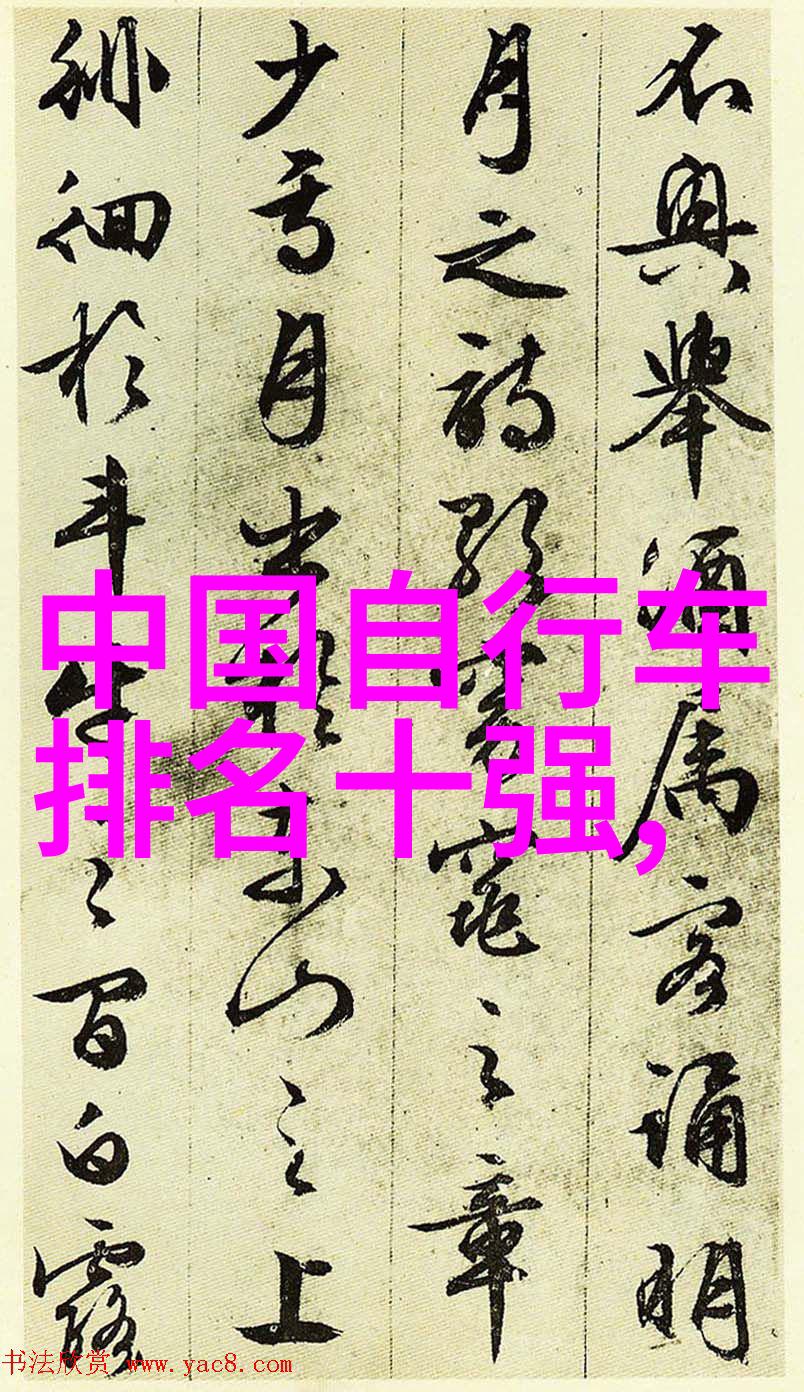 不興舉酒属客誦明
月之詩歌窈窕之章
少焉月出於東山之上
徘徊於斗牛之間白露
中国自行车
排名十强,
书法欣赏 www.yac8.com